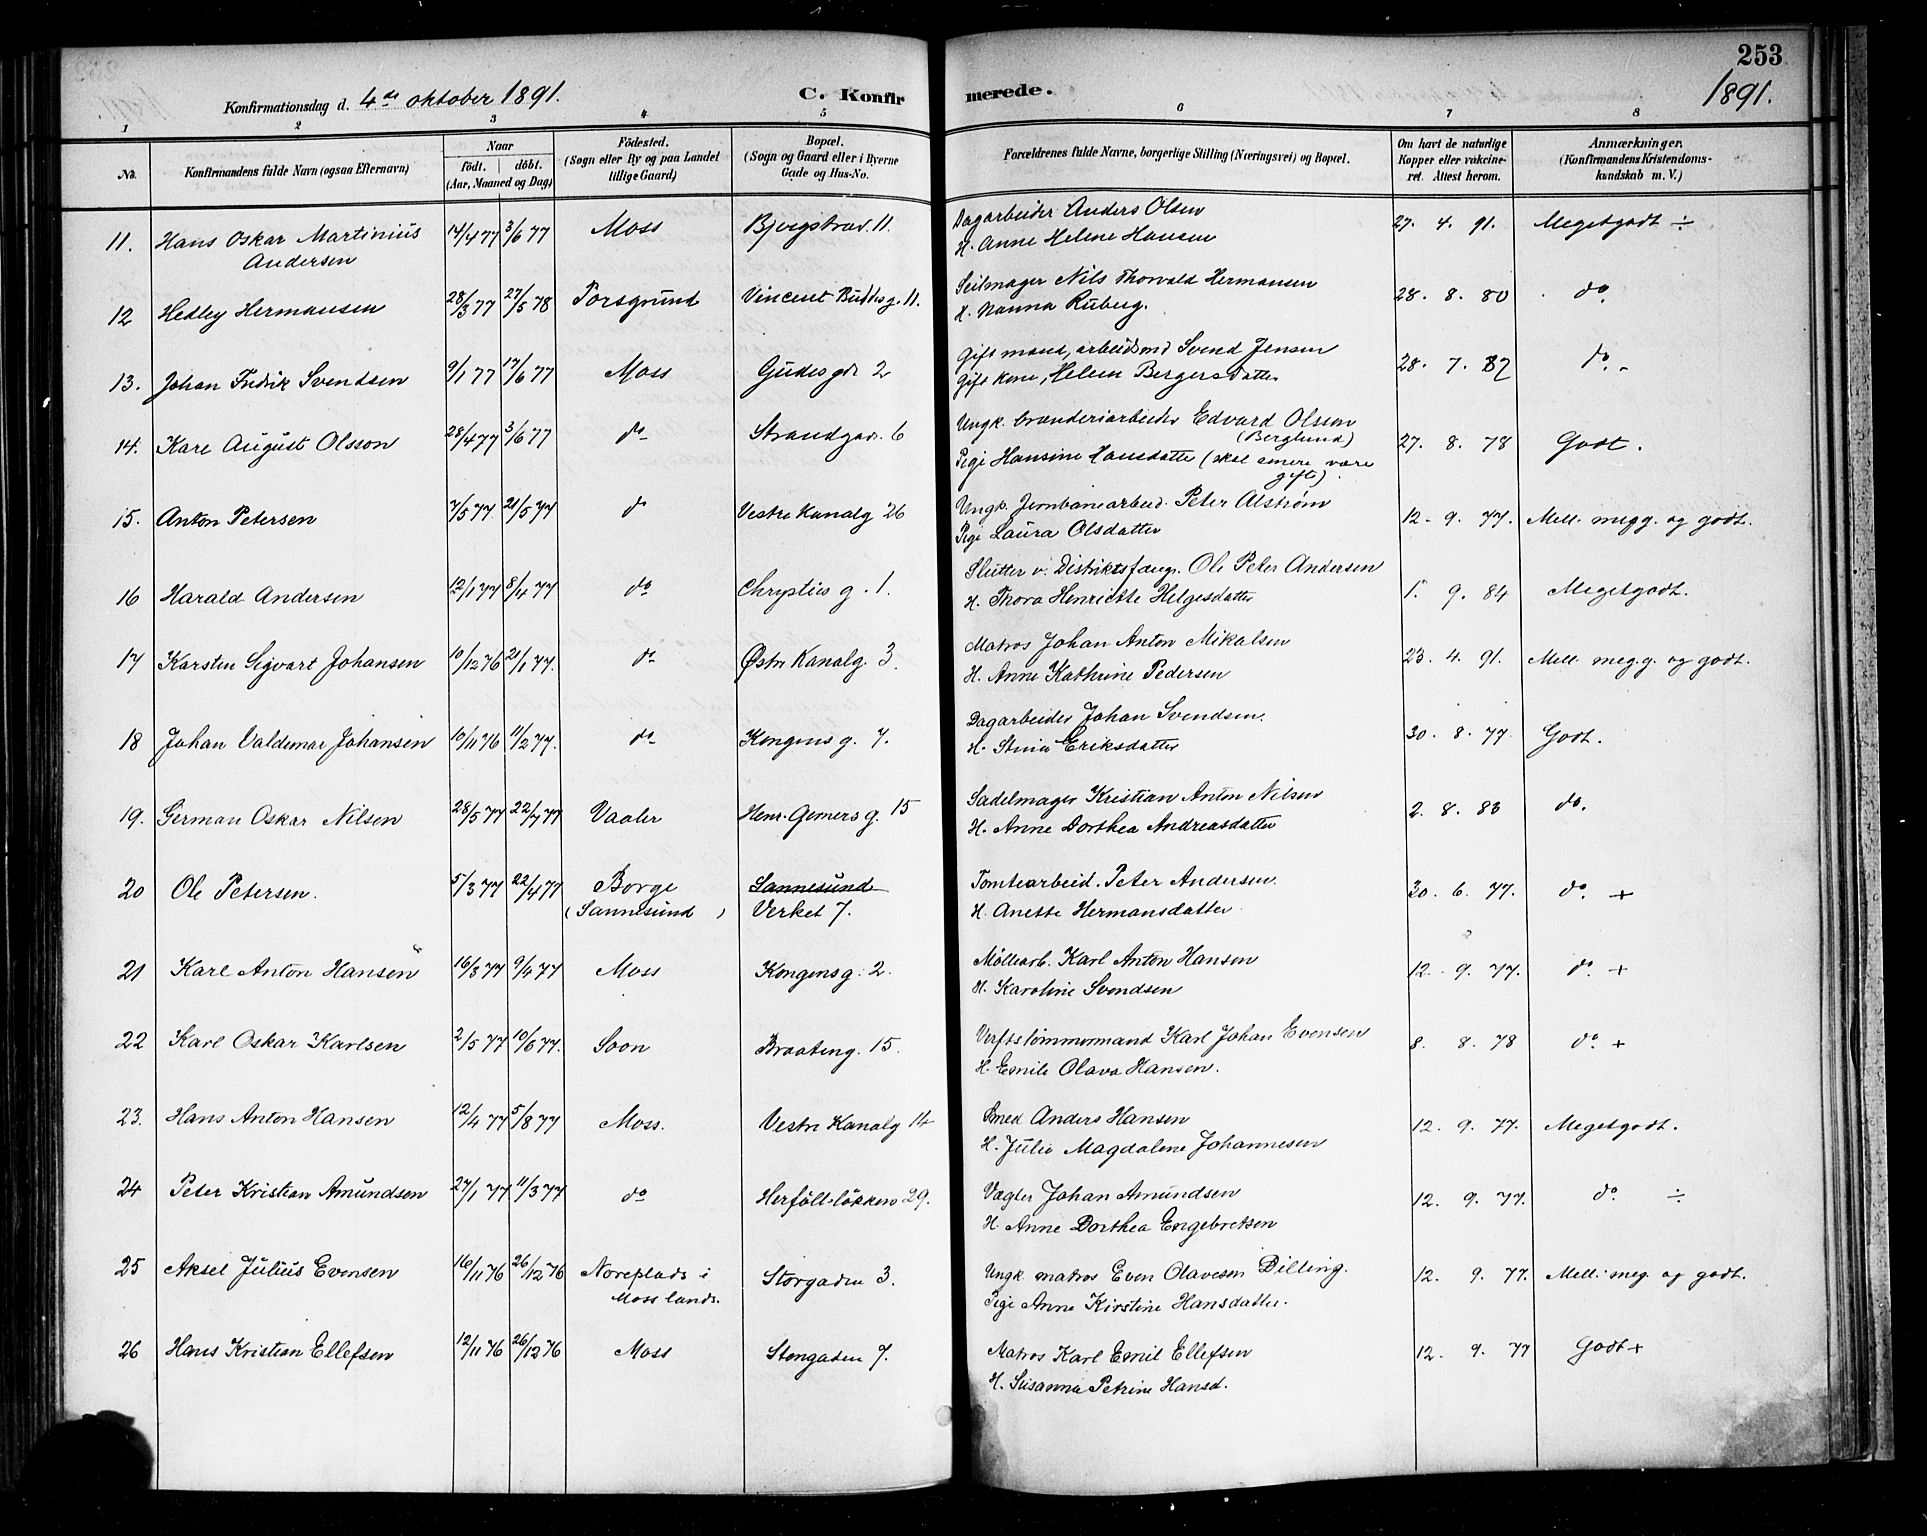 253
Konfirmationsdag d. 4de oktober 1891. C. Konfirmerede. 1891.
1 2 3 4 5 6 7 8
No. Konfirmandens fulde Navn (ogsaa Efternavn) Naar født. døbt. (Aar, Maaned og Dag) Fødested. (Sogn eller By og paa Landet tillige Gaard) Bopæl. (Sogn og Gaard eller i Byerne Gade og Hus-No. Forældrenes fulde Navne, borgerlige Stilling (Næringsvei) og Bopæl. Om havt de naturlige Kopper eller vakcineret. Attest herom. Anmærkninger. (Konfirmandens Kristendomskundskab m. V.)
11. Hans Oskar Martinius 14/4 77 3/6 77 Moss 11. Dagarbeider Anders Olsen 27. 4. 91. Megetgodt ÷
Andersen H. Anne Helene Hansen
12 Hedley Hermansen 28/3 77 27/5 78 Porsgrund Vincent Buddes g. 11. Seilmager Nils Thorvald Hermansen 28. 8. 80 do.
H. Nanna Ruberg.
13. Johan Fredrik Svendsen 9/1 77 17/6 77 Moss Gudes gd 2 Gift mand, arbeidsmd Svend Jensen 28. 7. 87 do.
Gift kone, Helene Bergersdatter
14. Kare August Olsson 28/4 77 3/6 77 do Strandgad. 6 Ungk. brænderiarbeider Edvard Olsson 27. 8. 78 Godt.
(Berglund)
Pige Hansine Hansdatter (skal senere være
gifte).
15. Anton Petersen 7/5 77. 21/5 77 do Vestre Kanalg 26 Ungk. Jernbanearbeid. Peter Alstrøm 12. 9. 77. Mell. megg. og godt.
Pige Laura Olsdatter
16 Harald Andersen 12/1 77 8/4 77 do Chrysties g. 1. Slutter v. Distriktsfængs. Ole Peter Andersen 1. 9. 84 Megetgodt.
H. Thora Henriette Helgesdatter
17 Karsten Sigvart Johansen 10/12 76 21/1 77. do Østre Kanalg. 3. Matros Johan Anton Mikalsen 23. 4. 91. Mell. meg.g. og godt.
H. Anne Kathrine Pedersen
18 Johan Valdemar Johansen 10/11 76 11/2 77. do Kongens g. 7. Dagarbeider Johan Svendsen. 30. 8. 77 Godt.
H. Stina Eriksdatter
19. German Oskar Nilsen 28/5 77 22/7 77 Vaaler Henr. Gerners g. 15 Sadelmager Kristian Anton Nilsen 2. 8. 83 do.
H. Anne Dorthea Andreasdatter
20 Ole Petersen. 5/3 77 22/4 77 Borge Sannesund Tomtearbeid. Peter Andersen. 30. 6. 77. do. +
(Sannesund) Verket 7. H. Anette Hermansdatter
21 Karl Anton Hansen 16/3 77 9/4 77 Moss Kongens g. 2. Møllearb. Karl Anton Hansen 12. 9. 77. do. +
H. Karoline Svendsen
22 Karl Oskar Karlsen 2/5 77 10/6 77. Soon Braateng. 15. Verftstømmermand Karl Johan Evensen 8. 8. 78 do. +
H. Emile Olava Hansen.
23. Hans Anton Hansen 12/4 77 5/8 77 Moss. Vestre Kanalg 14 Smed Anders Hansen 12. 9. 77. Megetgodt.
H. Julie Magdalene Johannesen
24 Peter Kristian Amundsen 27/1 77 11/3 77 do Herføll-løkken 29. Vægter Johan Amundsen 12. 9. 77. do. ÷
H. Anne Dorthea Engebretsen
25 Aksel Julius Evensen 16/11 76 26/12 76 Noreplads i Storgaden 3. Ungk. matros Even Olavesen Dilling. 12. 9. 77. Mell. meg. og godt.
Moss lands. Pige Anne Kirstine Hansdatter.
26 Hans Kristian Ellefsen 12/11 76 26/12 76 Moss Storgaden 7. Matros Karl Emil Ellefsen 12. 9. 77 Godt +
H. Susanna Petrine Hansd.